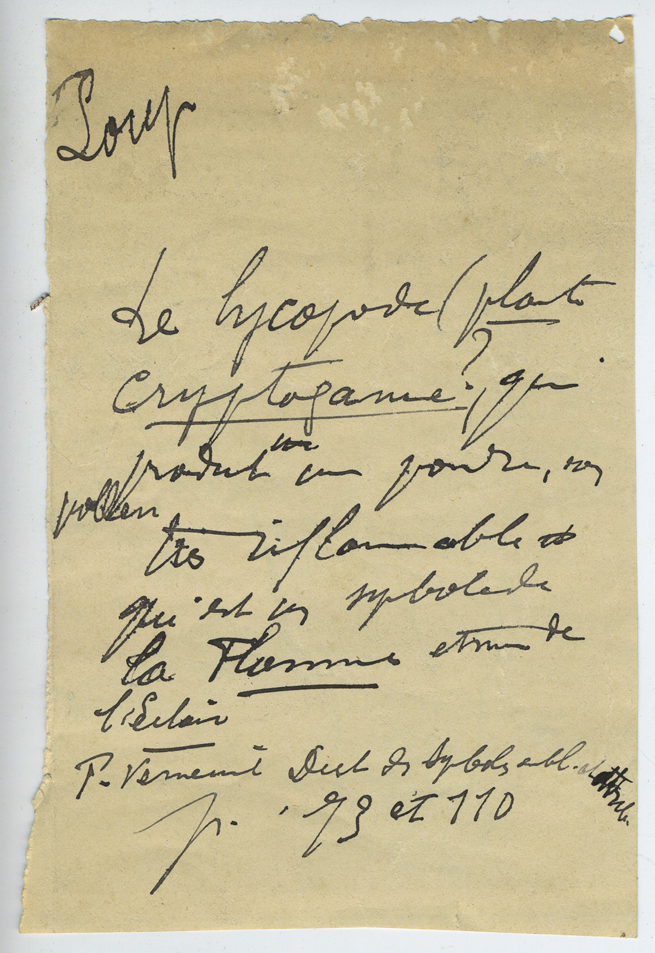 Loup
Le lycopode (plante
cryptogame ?, qui
produit une un poudre, son
pollen
très inflammable et
qui est un symbole de
la Flamme et même de
l'Eclair
P. Verneuil Dict des Symboles
p. 73 et 110